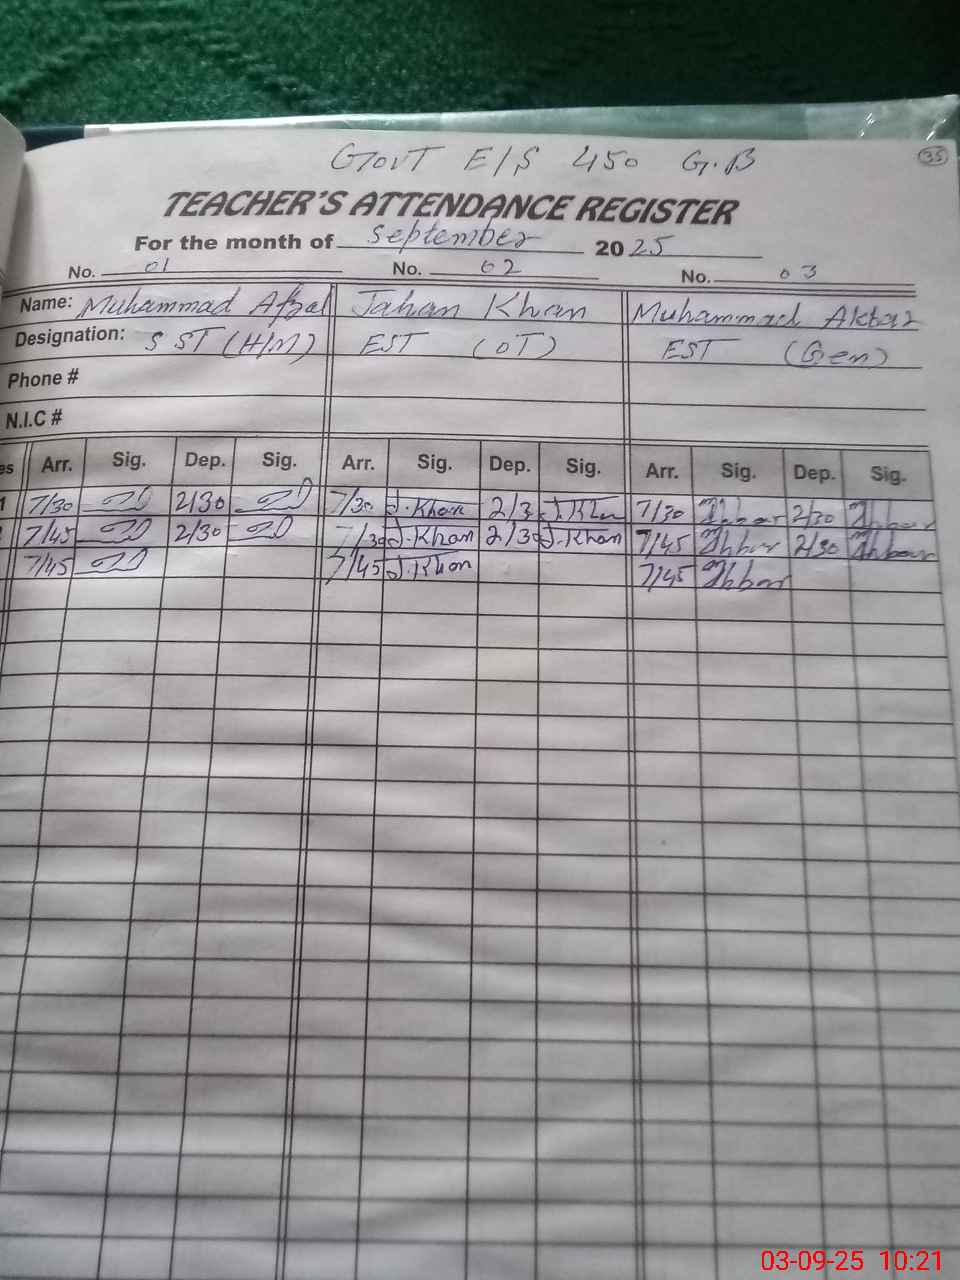 GOVT E/S 450 G.B
35
TEACHER'S ATTENDANCE REGISTER
For the month of September 2025
No. 01 No. 02 No. 03
Name: Muhammad Afzal Jahan Khan Muhammad Akbar
Designation: S ST (H/M) EST (OT) EST (Gen)
Phone #
N.I.C #
es Arr. Sig. Dep. Sig. Arr. Sig. Dep. Sig. Arr. Sig. Dep. Sig.
1 7/30 2/30 7/30 J.Khan 2/3 J.Khan 7/30 2/30
7/45 2/30 7/30 J.Khan 2/30 J.Khan 7/45 2/30
7/45 7/45 J.Khan 7/45
03-09-25 10:21